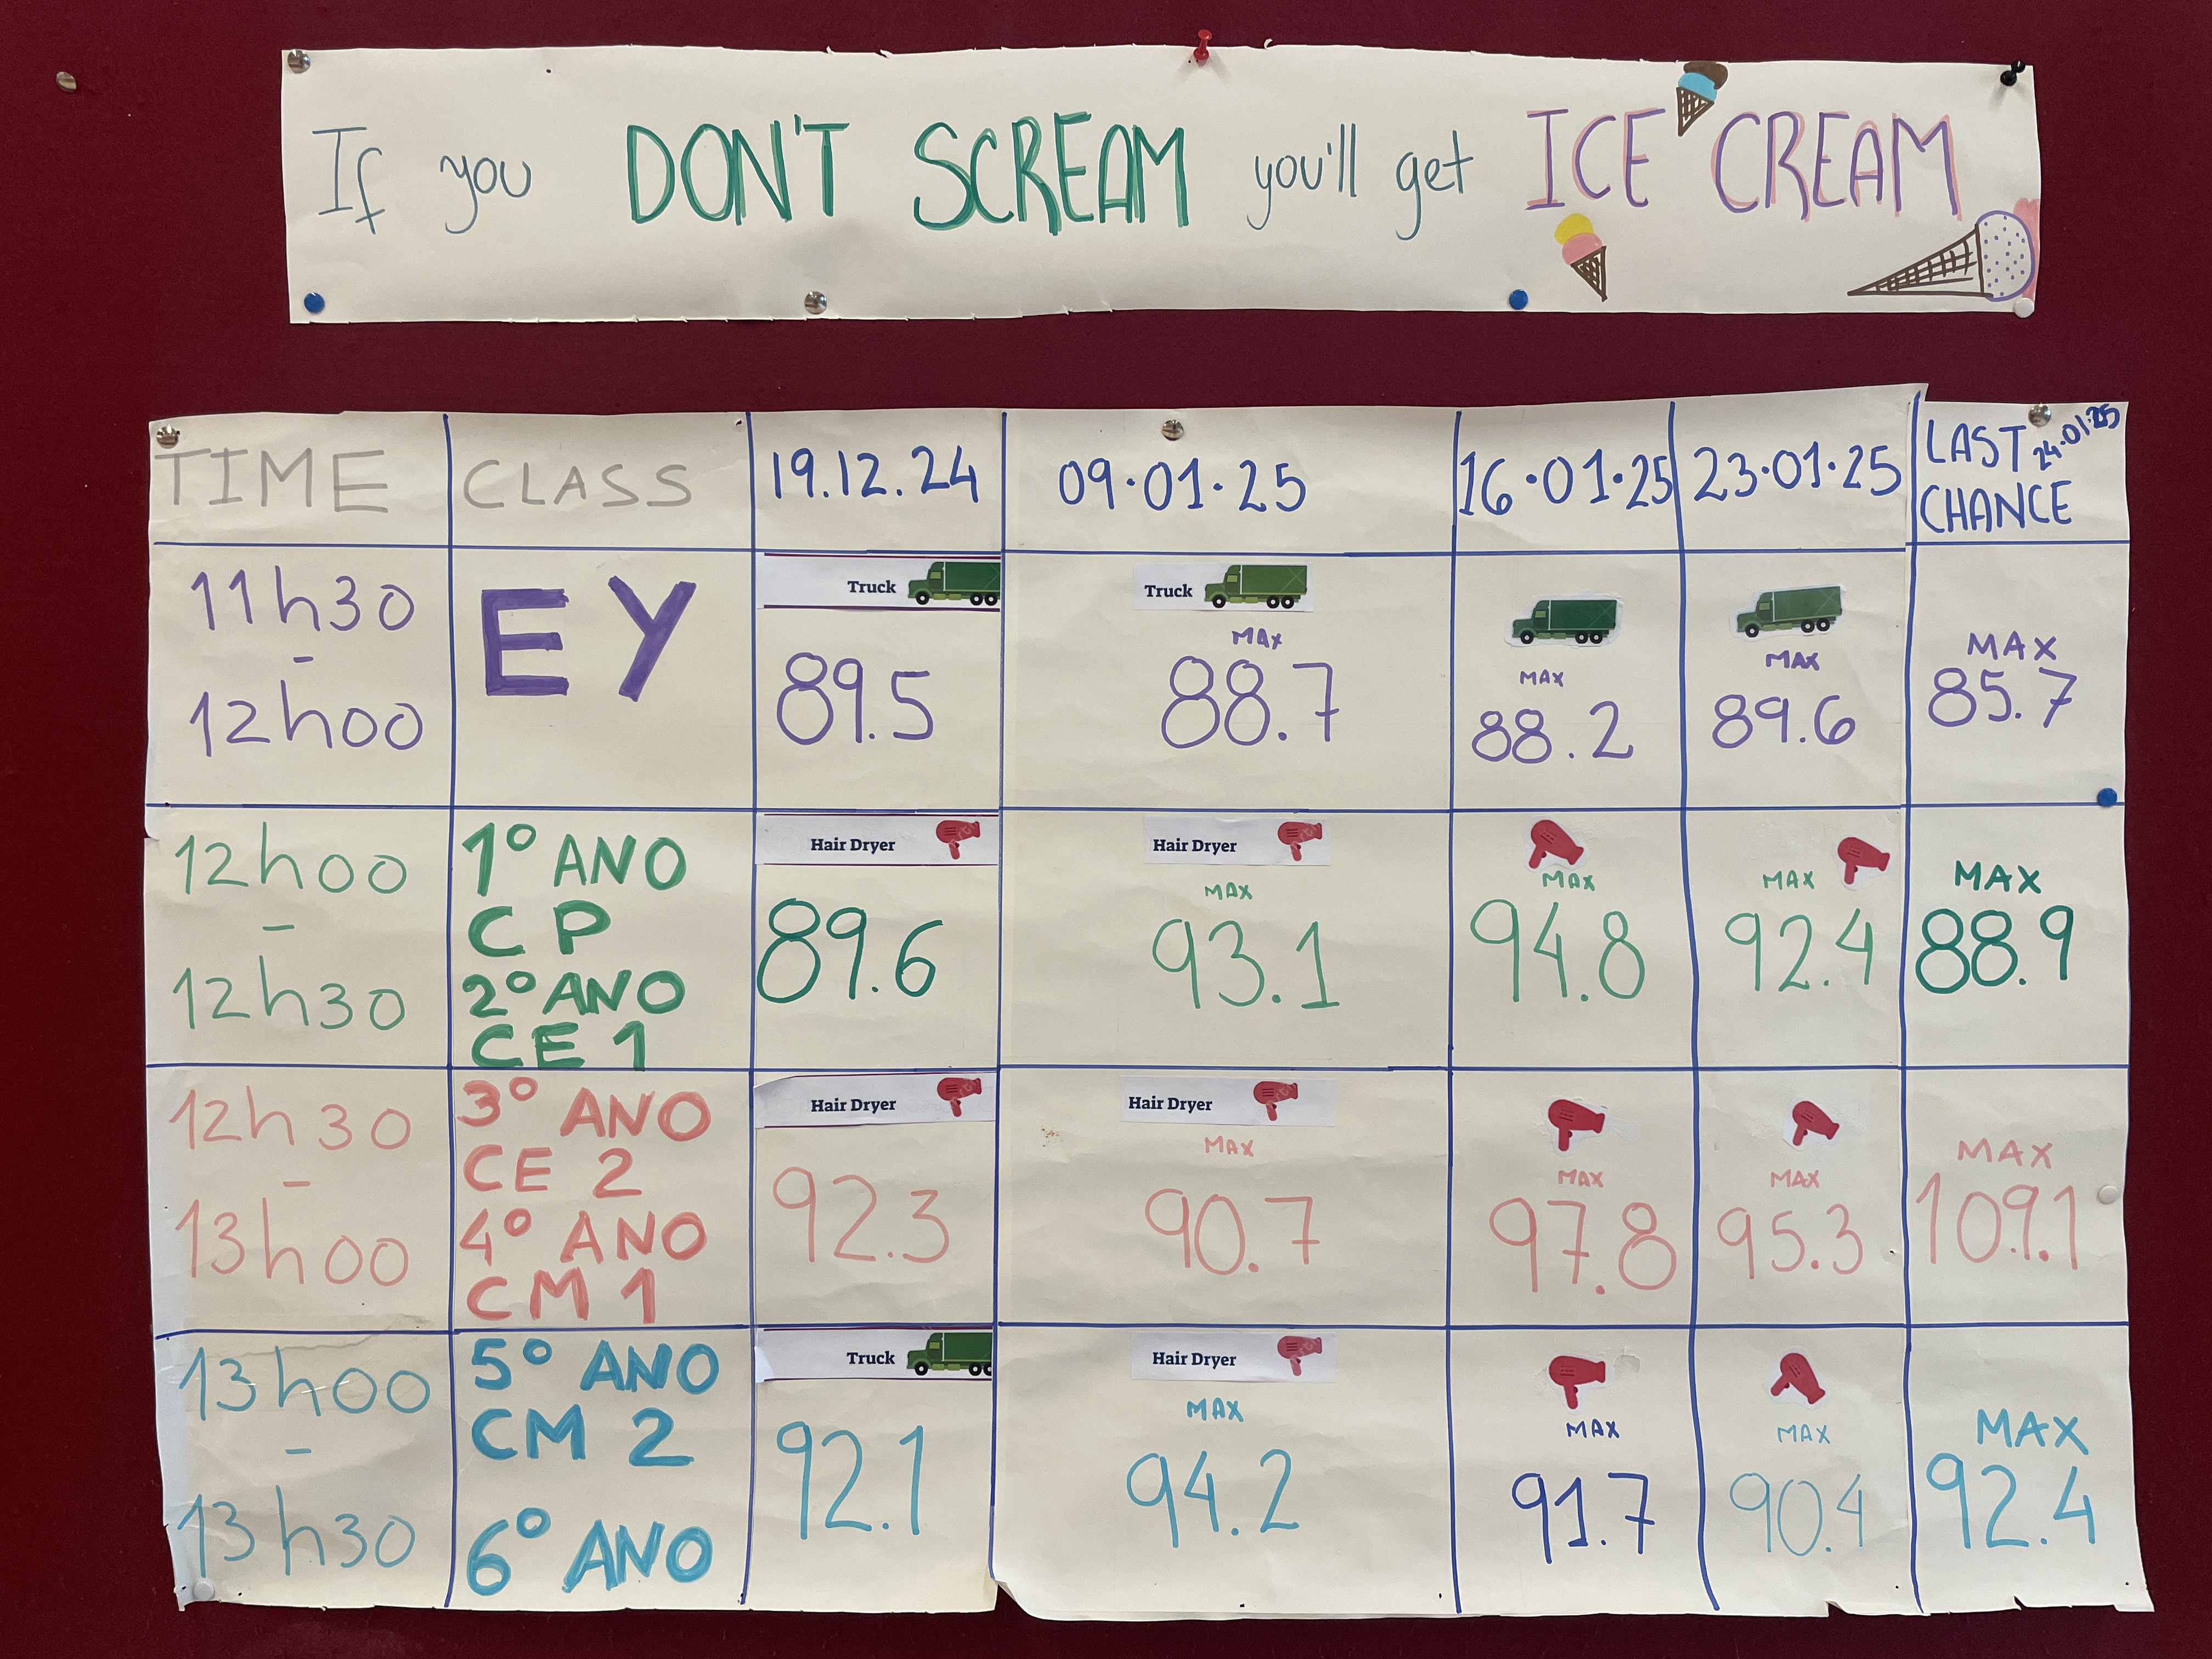 If you DON'T SCREAM you'll get ICE CREAM
TIME CLASS 19.12.24 09.01.25 16.01.25 23.01.25 LAST CHANCE 24.01.25
11h30
-
12h00
EY
Truck
89.5
Truck
MAX
88.7
MAX
88.2
MAX
89.6
MAX
85.7
12h00
-
12h30
1º ANO
CP
2º ANO
CE 1
Hair Dryer
89.6
Hair Dryer
MAX
93.1
MAX
94.8
MAX
92.4
MAX
88.9
12h30
-
13h00
3º ANO
CE 2
4º ANO
CM 1
Hair Dryer
92.3
Hair Dryer
MAX
90.7
MAX
97.8
MAX
95.3
MAX
109.1
13h00
-
13h30
5º ANO
CM 2
6º ANO
Truck
92.1
Hair Dryer
MAX
94.2
MAX
91.7
MAX
90.4
MAX
92.4